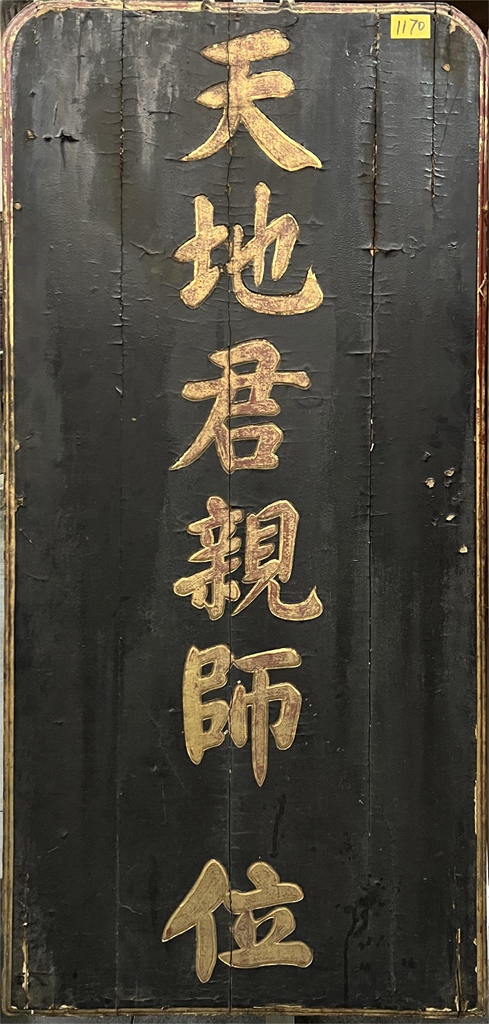 1170
天地君親師位